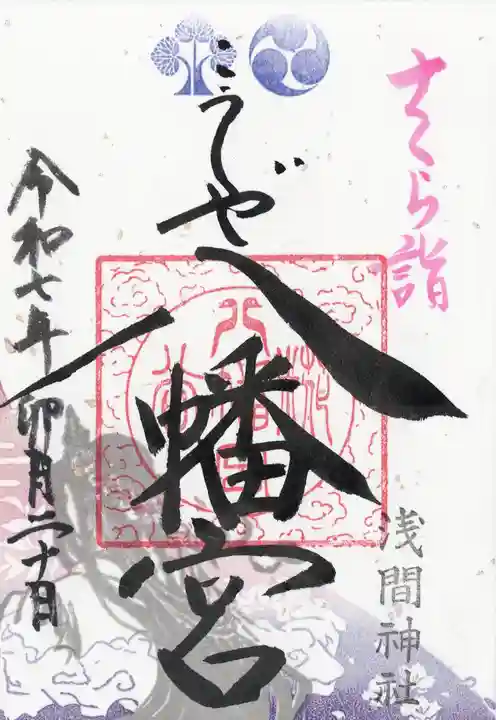 さくら詣
浅間神社
こうじや
八幡宮
令和七年卯月二十日